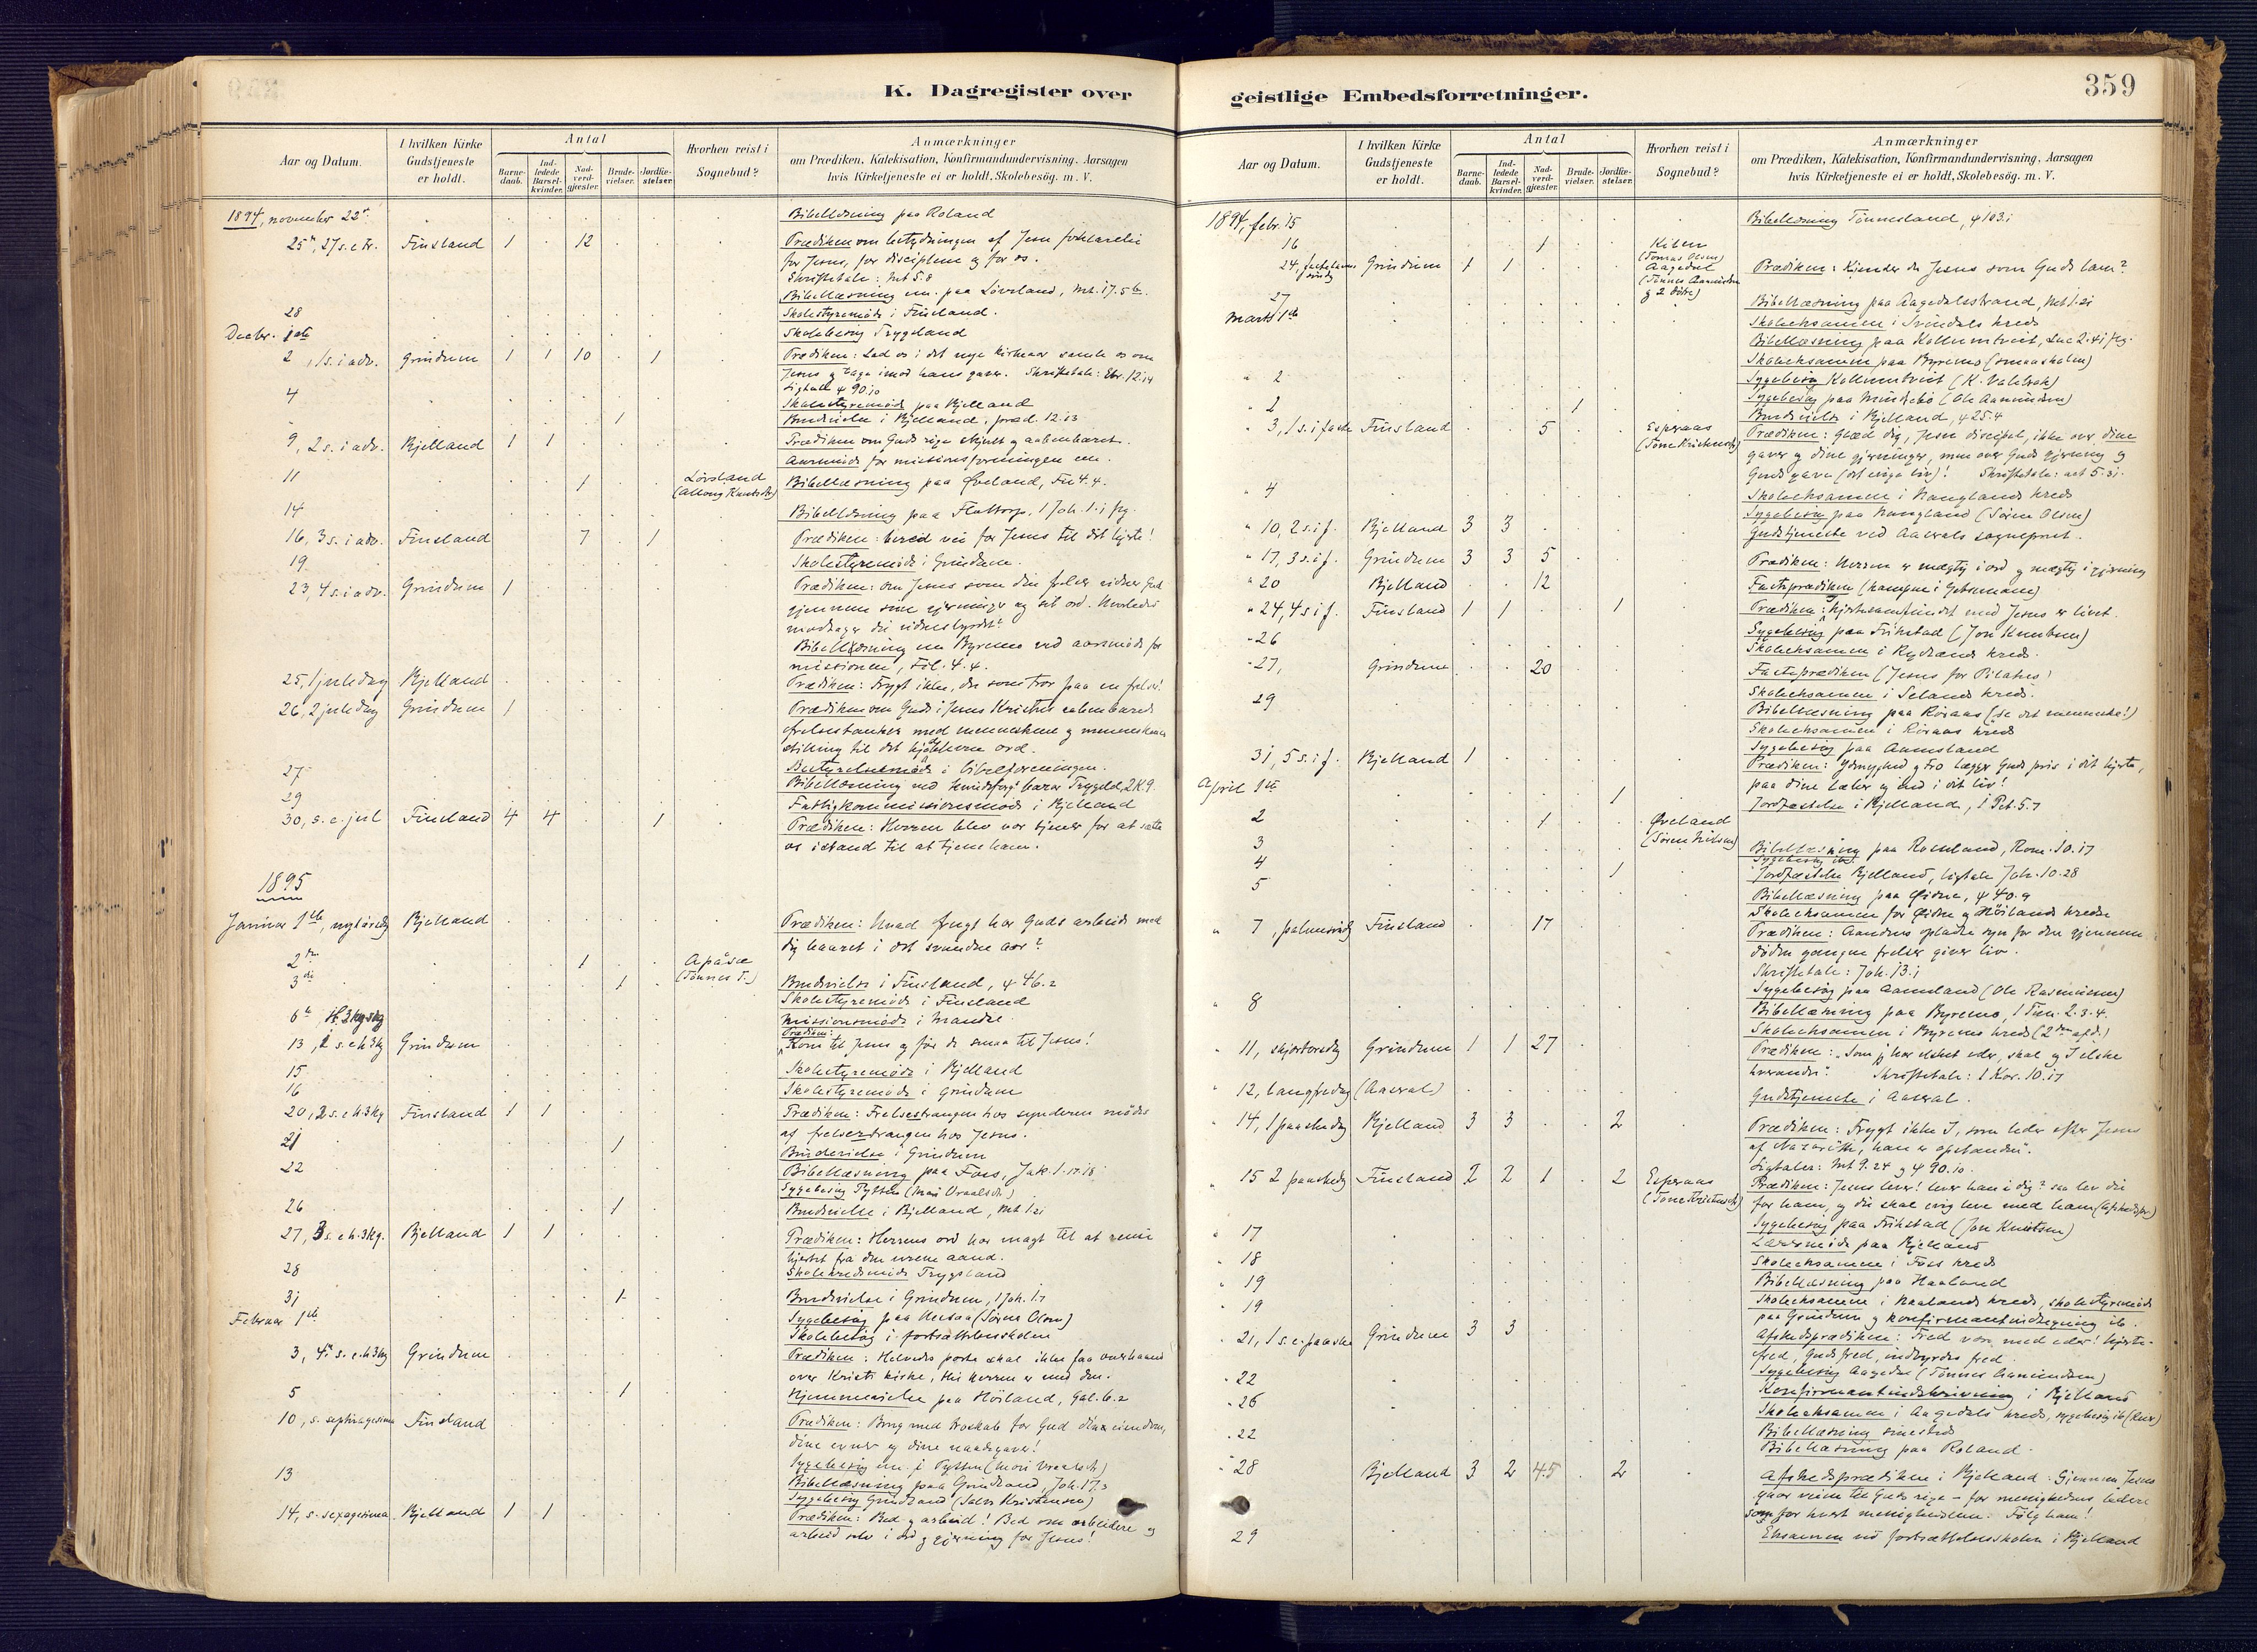 K. Dagregister over
Aar og Datum.
I hvilken Kirke Gudstjeneste er holdt.
Antal
Barnedaab.
Indledede Barselkvinder.
Nadverdgjester.
Brudevielser.
Jordfæstelser.
Hvorhen reist i Sognebud?
Anmærkninger
om Prædiken, Katekisation, Konfirmandundervisning, Aarsagen
hvis Kirketjeneste ei er holdt, Skolebesøg. m. V.
1894, november 22
Bibellæsning paa Roland
25, 27 s. e tr. Finsland 1 . 12
Prædiken om betydningen af Jesu forklarelse
for Jesus, for disciplene og for os.
Skriftetale: Mt 5.8
Bibellæsning em. paa Lövsland, Mt. 17.5
28 Skolestyremöde i Finsland.
Decbr. 1ste Skolebesög Trygsland
2, 1 s. i adv. Grindum 1 1 10 . 1
Prædiken: Lad os i det nye kirkeaar samle os om
Jesus og tage imod hans gaver. Skriftetale: Ebr. 12.14
Ligtale ψ 90.10
4 Skolestyremöde paa Bjelland
Brudvielse i Bjelland, præd. 12.13
9, 2 s. i adv. Bjelland 1 1
Prædiken om Guds rige skjult og aabenbaret.
Aarsmöde for missionsforeningen em.
11 1 Lövsland Bibellæsning paa Øveland, Fil 4.4.
14 Bibellæsning paa Flottorp, 1 Joh. 1.1 fg.
16, 3 s. i adv. Finsland 7 . 1 Prædiken: bered vei for Jesus til dit hjerte!
19 Skolestyremöde i Grindum.
23, 4 s. i adv. Grindum 1 Prædiken: Om Jesus som din frelser vidner Gud
gjennem sine gjerninger og sit ord. Hvorledes
modtager du vidnesbyrdet?
Bibellæsning em Byremo ved aarsmöde for
missionen, Fil. 4.4.
25, 1 juledag Bjelland Prædiken: Frygt ikke, du som tror paa en frelser!
26, 2 juledag Grindum 1 Prædiken om Guds i Jesus Kristus aabenbarede
frelsestanker med menneskene og menneskenes
stilling til det
27 Bestyrelsesmöde i bibelforeningen.
29 Fattigkommissionsmöde i Bjelland
30, s. e. jul Finsland 4 4 . . 1 Prædiken: Herren blev vor tjener for at sætte
os istand til at tjene ham.
1895
Januar 1ste, nytårsdg Bjelland Prædiken: Hvad frugt har Guds arbeide med
dig baaret i det svundne aar?
2den 1 Apåsæ
(Tönnes T.)
3die 1 Brudvielse i Finsland, ψ 46.2
Skolestyremöde i Finsland
6te H. 3 kgsdg Missionsmöde i Mandal.
13, 1 s. e h 3 kg Grindum Prædiken: "Kom til Jesus og før de smaa til Jesus!
15 Skolestyremöde i Bjelland
16 Skolestyremöde i Grindum
20, 2 s. e h. 3 kg Finsland 1 1 Prædiken: Frelsestrangen hos synderen mödes
af frelserdrangen hos Jesus.
21 1 Brudevielse i Grindum
22 Bibellæsning paa Foss, Jak. 1.17.18
Sygebesög Pytten
26 1 Brudvielse i Bjelland, Mt 1.21
27, 3 s. e h. 3 kg. Bjelland 1 1 Prædiken: Herrens ord har magt til at rense
hjertet fra den urene aand.
28 Skolekredsmöde Trygsland
31 1 Brudvielse i Grindum, 1 Joh. 1.7
Februar 1ste Sygebesög paa (Sören Olsen)
Skolebesög i fortsættelsesskolen
3, 4 s. e. h 3 kg Grindum Prædiken: Helvedes porte skal ikke faa overhaand
over Kristi kirke, thi herren er med den.
5 1 Hjemmevielse paa Höiland, Gal. 6.2
10, s. septuagesima Finsland Prædiken: Brug med troskab for Gud dine eiendom,
dine evner og dine naadegaver!
Sygebesög em. i Pytten
13 Bibellæsning paa Grindland, Joh. 17.3
Sygebesög Grindland (Salve Kristensen)
14, s. sexagesima Bjelland 1 1 Prædiken: Bed og arbeid! Bed om arbeidere og
arbeid selv i ord og gjerning for Jesus!
geistlige Embedsforretninger.
359
Aar og Datum.
I hvilken Kirke Gudstjeneste er holdt.
Antal
Barnedaab.
Indledede Barselkvinder.
Nadverdgjester.
Brudevielser.
Jordfæstelser.
Hvorhen reist i Sognebud?
Anmærkninger
om Prædiken, Katekisation, Konfirmandundervisning, Aarsagen
hvis Kirketjeneste ei er holdt, Skolebesøg. m. V.
1894, febr. 15 Bibellæsning Tönnesland, ψ 103.1
16 1 (Tomas Olsen)
24, fastelavns söndg Grindum 1 1 Aagedal Prædiken: Kjender du Jesus som Guds lam?
27 Bibellæsning paa Aagedalsstrand, Mt 1.21
Marts 1ste Skoleeksamen i Svindals kreds
Bibellæsning paa Kollumtveit, Luc 2.41 fg.
Skoleeksamen paa Byremo (smaaskolen)
" 2 Sygebesög Kollumtveit
Sygebesög paa Mindebö (Ole Aanundsen)
" 2 1 Brudvielse i Bjelland, ψ 25.4
" 3, 1 s. i faste Finsland 5 Esperaas
Prædiken: Glæd dig, Jesu discipel, ikke over dine
gaver og dine gjerninger, men over Guds gjerning og
Guds gave (det evige liv)! Skriftetale: act 5.31.
" 4 Skoleeksamen i Nauglands kreds
Sygebesög paa Naugland (Sören Olsen)
" 10, 2 s. i f. Bjelland 3 3 Gudstjeneste ved Aaserals sogneprest.
" 17, 3 s. i f. Grindum 3 3 5 Prædiken: Herren er mægtig i ord og mægtig i gjerning
" 20 Bjelland 12 Fasteprædiken (kampen i Getsemane)
" 24, 4 s i f. Finsland 1 1 . . 1 Prædiken: Hjertesamfundet med Jesus er livet.
Sygebesög paa Frikstad (Jon Knutsen)
" 26 Skoleeksamen i Rydlands kreds.
" 27, Grindum 20 Fasteprædiken (Jesus for Pilatus)
Skoleeksamen i Selands kreds.
29 Bibellæsning paa Röraas (se det menneske!)
Skoleeksamen i Röraas kreds
Sygebesög paa Aamsland
31, 5 s. i f. Bjelland 1 Prædiken: Ydmyghed og tro lægger Guds pris i dit hjerte,
paa dine læber og ind i dit liv!
April 1ste 1 Jordfæstelse i Bjelland, 1 Pet. 5.7
2 1 Øveland
(Sören Nilsen)
3 Bibellæsning paa Rosseland, Rom. 10.17
4 1 Jordfæstelse Bjelland, ligtale Joh. 10.28
5 Bibellæsning paa Øidne, ψ 40.9
Skoleeksamen for Øidne og Höilands kredse
" 7, palmesöndg Finsland 17 Prædiken: Aandens opladte syn for den gjennem
döden gangne frelser giver liv.
Skriftetale: Joh. 13.1
Sygebesög paa Aamland (Ole Rasmussen)
" 8 Bibellæsning paa Byremo, 1 Tim. 2.3-4.
Skoleeksamen i Byremo kreds (2den afd.)
" 11, skjærtorsdg Grindum 1 1 27 Prædiken: "Som jeg har elsket eder, skal og I elske
hverandre". Skriftetale: 1 Kor. 10.17
" 12, langfredag (Aaseral) Gudstjeneste i Aaseral.
" 14, 1 paaskedg Bjelland 3 3 . . 2 Prædiken: Frygt ikke I, som leder efter Jesus
af Nazareth, han er opstanden".
Ligtaler: Mt 9.24 og ψ 90.10.
" 15 2 paaskedg Finsland 2 2 1 . 2 Esperaas
Prædiken: Jesus lever! lever han i dig? saa lev du
for ham, og du skal evig leve med ham (afskedspr.)
" 17 Sygebesög paa Frikstad (Jon Knutsen)
Læsemöde paa Bjelland
" 18 Skoleeksamen i Foss kreds
" 19 Bibellæsning paa Haaland
" 19 Skoleeksamen i Haalands kreds, skolestyremöde
paa Grindum og konfirmantindtegning ib.
" 21, 1 s. e. paaske Grindum 3 3 Afskedsprædiken: Fred være med eder! hjertefred,
Guds fred, indbyrdes fred.
" 22 Sygebesög Aagedal (Tönnes Aanundsen)
Konfirmantindskrivning i Bjelland
" 26 Skoleeksamen i Aagedals kreds, sygebesög ib
" 22 Bibellæsning smesteds
Bibellæsning paa Roland
" 28 Bjelland 3 2 45 . 2 Afskedsprædiken i Bjelland: Gjennem Jesus
gaar veien til Guds rige - for menighedens ledere
som for hvert menighedslem. Fölg ham!
29 Eksamen ved fortsættelsesskolen i Bjelland